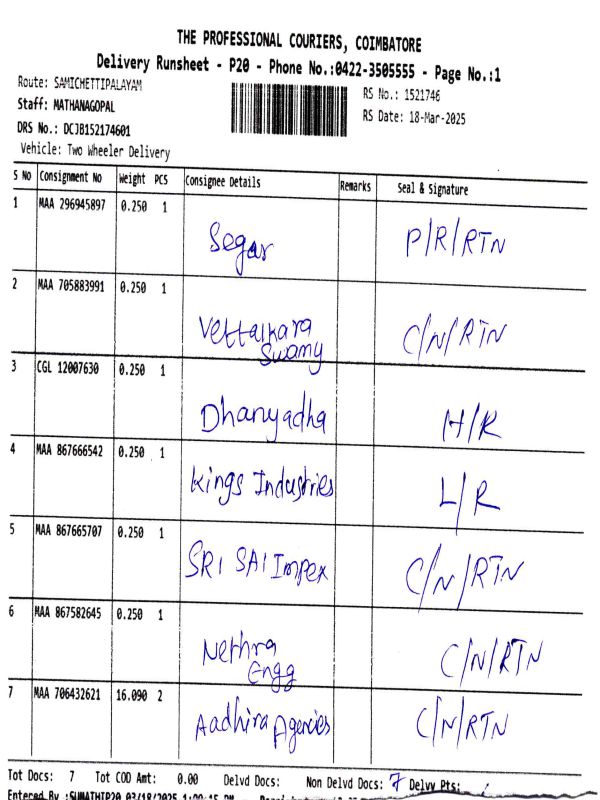 THE PROFESSIONAL COURIERS, COIMBATORE
Delivery Runsheet - P20 - Phone No.:0422-3505555 - Page No.:1
Route: SAMICHETTIPALAYAM RS No.: 1521746
Staff: MATHANAGOPAL RS Date: 18-Mar-2025
DRS No.: DCJB152174601
Vehicle: Two Wheeler Delivery
S No Consignment No Weight PCS Consignee Details Remarks Seal & Signature
1 MAA 296945897 0.250 1
Segar P/R/RTN
2 MAA 705883991 0.250 1
Vettaikara C/N/RTN
Swamy
3 CGL 12007630 0.250 1
Dhanyadha H/R
4 MAA 867666542 0.250 1
Kings Industries L/R
5 MAA 867665707 0.250 1
SRI SAI Impex C/N/RTN
6 MAA 867582645 0.250 1
Nethra C/N/RTN
Engg
7 MAA 706432621 16.090 2
Aadhira Agencies C/N/RTN
Tot Docs: 7 Tot COD Amt: 0.00 Delvd Docs: Non Delvd Docs: 7 Delvy Pts:
Entered By :SUMATHIP20 03/18/2025